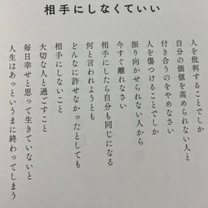 相手にしなくていい
人を批判することでしか
自分の価値を高められない人と
付き合うのをやめなさい
人を傷つけることでしか
振り向かせられない人から
今すぐ離れなさい
相手にしたら自分も同じになる
何と言われようとも
どんなに許せなかったとしても
相手にしないこと
大切な人と過ごすこと
毎日幸せと思って生きていないと
人生はあっというまに終わってしまう